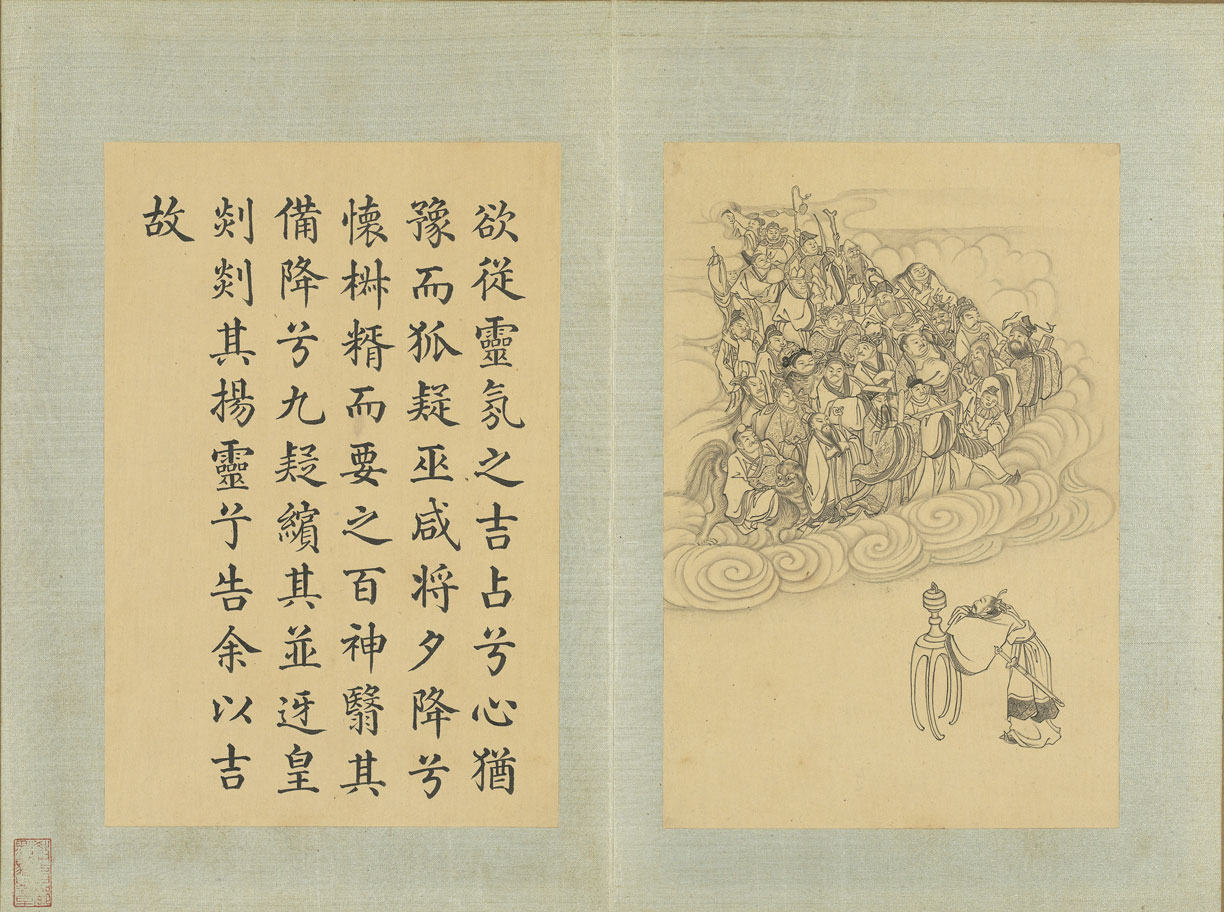 欲從靈氛之吉占兮心猶
豫而狐疑巫咸将夕降兮
懐椒糈而要之百神翳其
備降兮九疑繽其並迓皇
剡剡其揚靈兮告余以吉
故